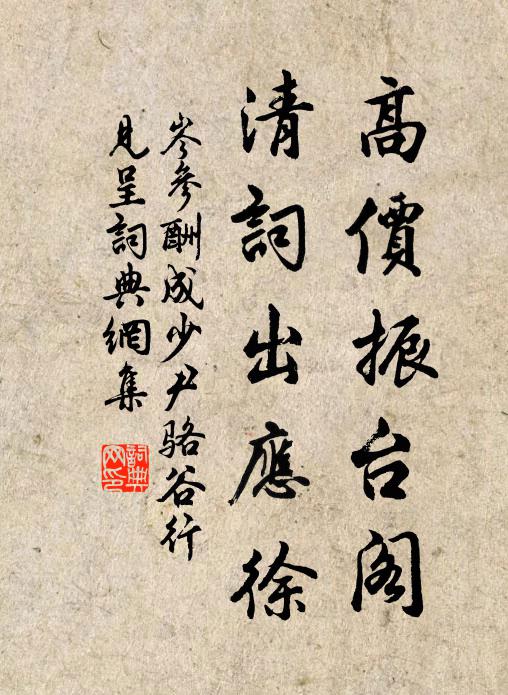 高價振台阁
清詞出應徐
岑參酬成少尹骆谷行
見呈詞典網集
詞典网印